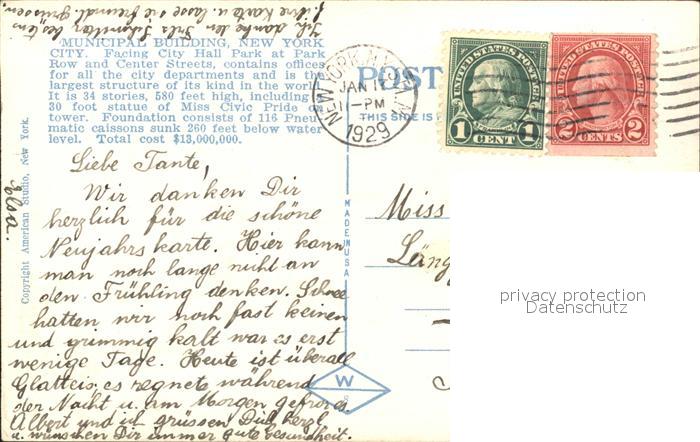 Ich danke der Frls Schmitter bestens
f. ihre Karte u. lasse sie freundl. grüssen.
MUNICIPAL BUILDING, NEW YORK
CITY. Facing City Hall Park at Park
Row and Center Streets, contains offices
for all the city departments and is the
largest structure of its kind in the world.
It is 34 stories, 580 feet high, including
30 foot statue of Miss Civic Pride on
tower. Foundation consists of 116 Pneu-
matic caissons sunk 260 feet below water
level. Total cost $13,000,000.
Copyright American Studio, New York.
Elsa.
Liebe Tante,
Wir danken Dir
herzlich für die schöne
Neujahrskarte. Hier kann
man noch lange nicht an
den Frühling denken. Schnee
hatten wir noch fast keinen
und grimmig kalt war es erst
wenige Tage. Heute ist überall
Glatteis, es regnete während
der Nacht u. am Morgen gefror es.
Albert und ich grüssen Dich herzl.
u. wünschen Dir immer gute Gesundheit.
MADE IN USA
W
POST
THIS SIDE IS
NEW YORK, N.Y.
JAN 1
11-PM
1929
UNITED STATES POSTAGE
1 CENT 1
UNITED STATES POSTAGE
2 CENTS 2
Miss
Läng
privacy protection
Datenschutz